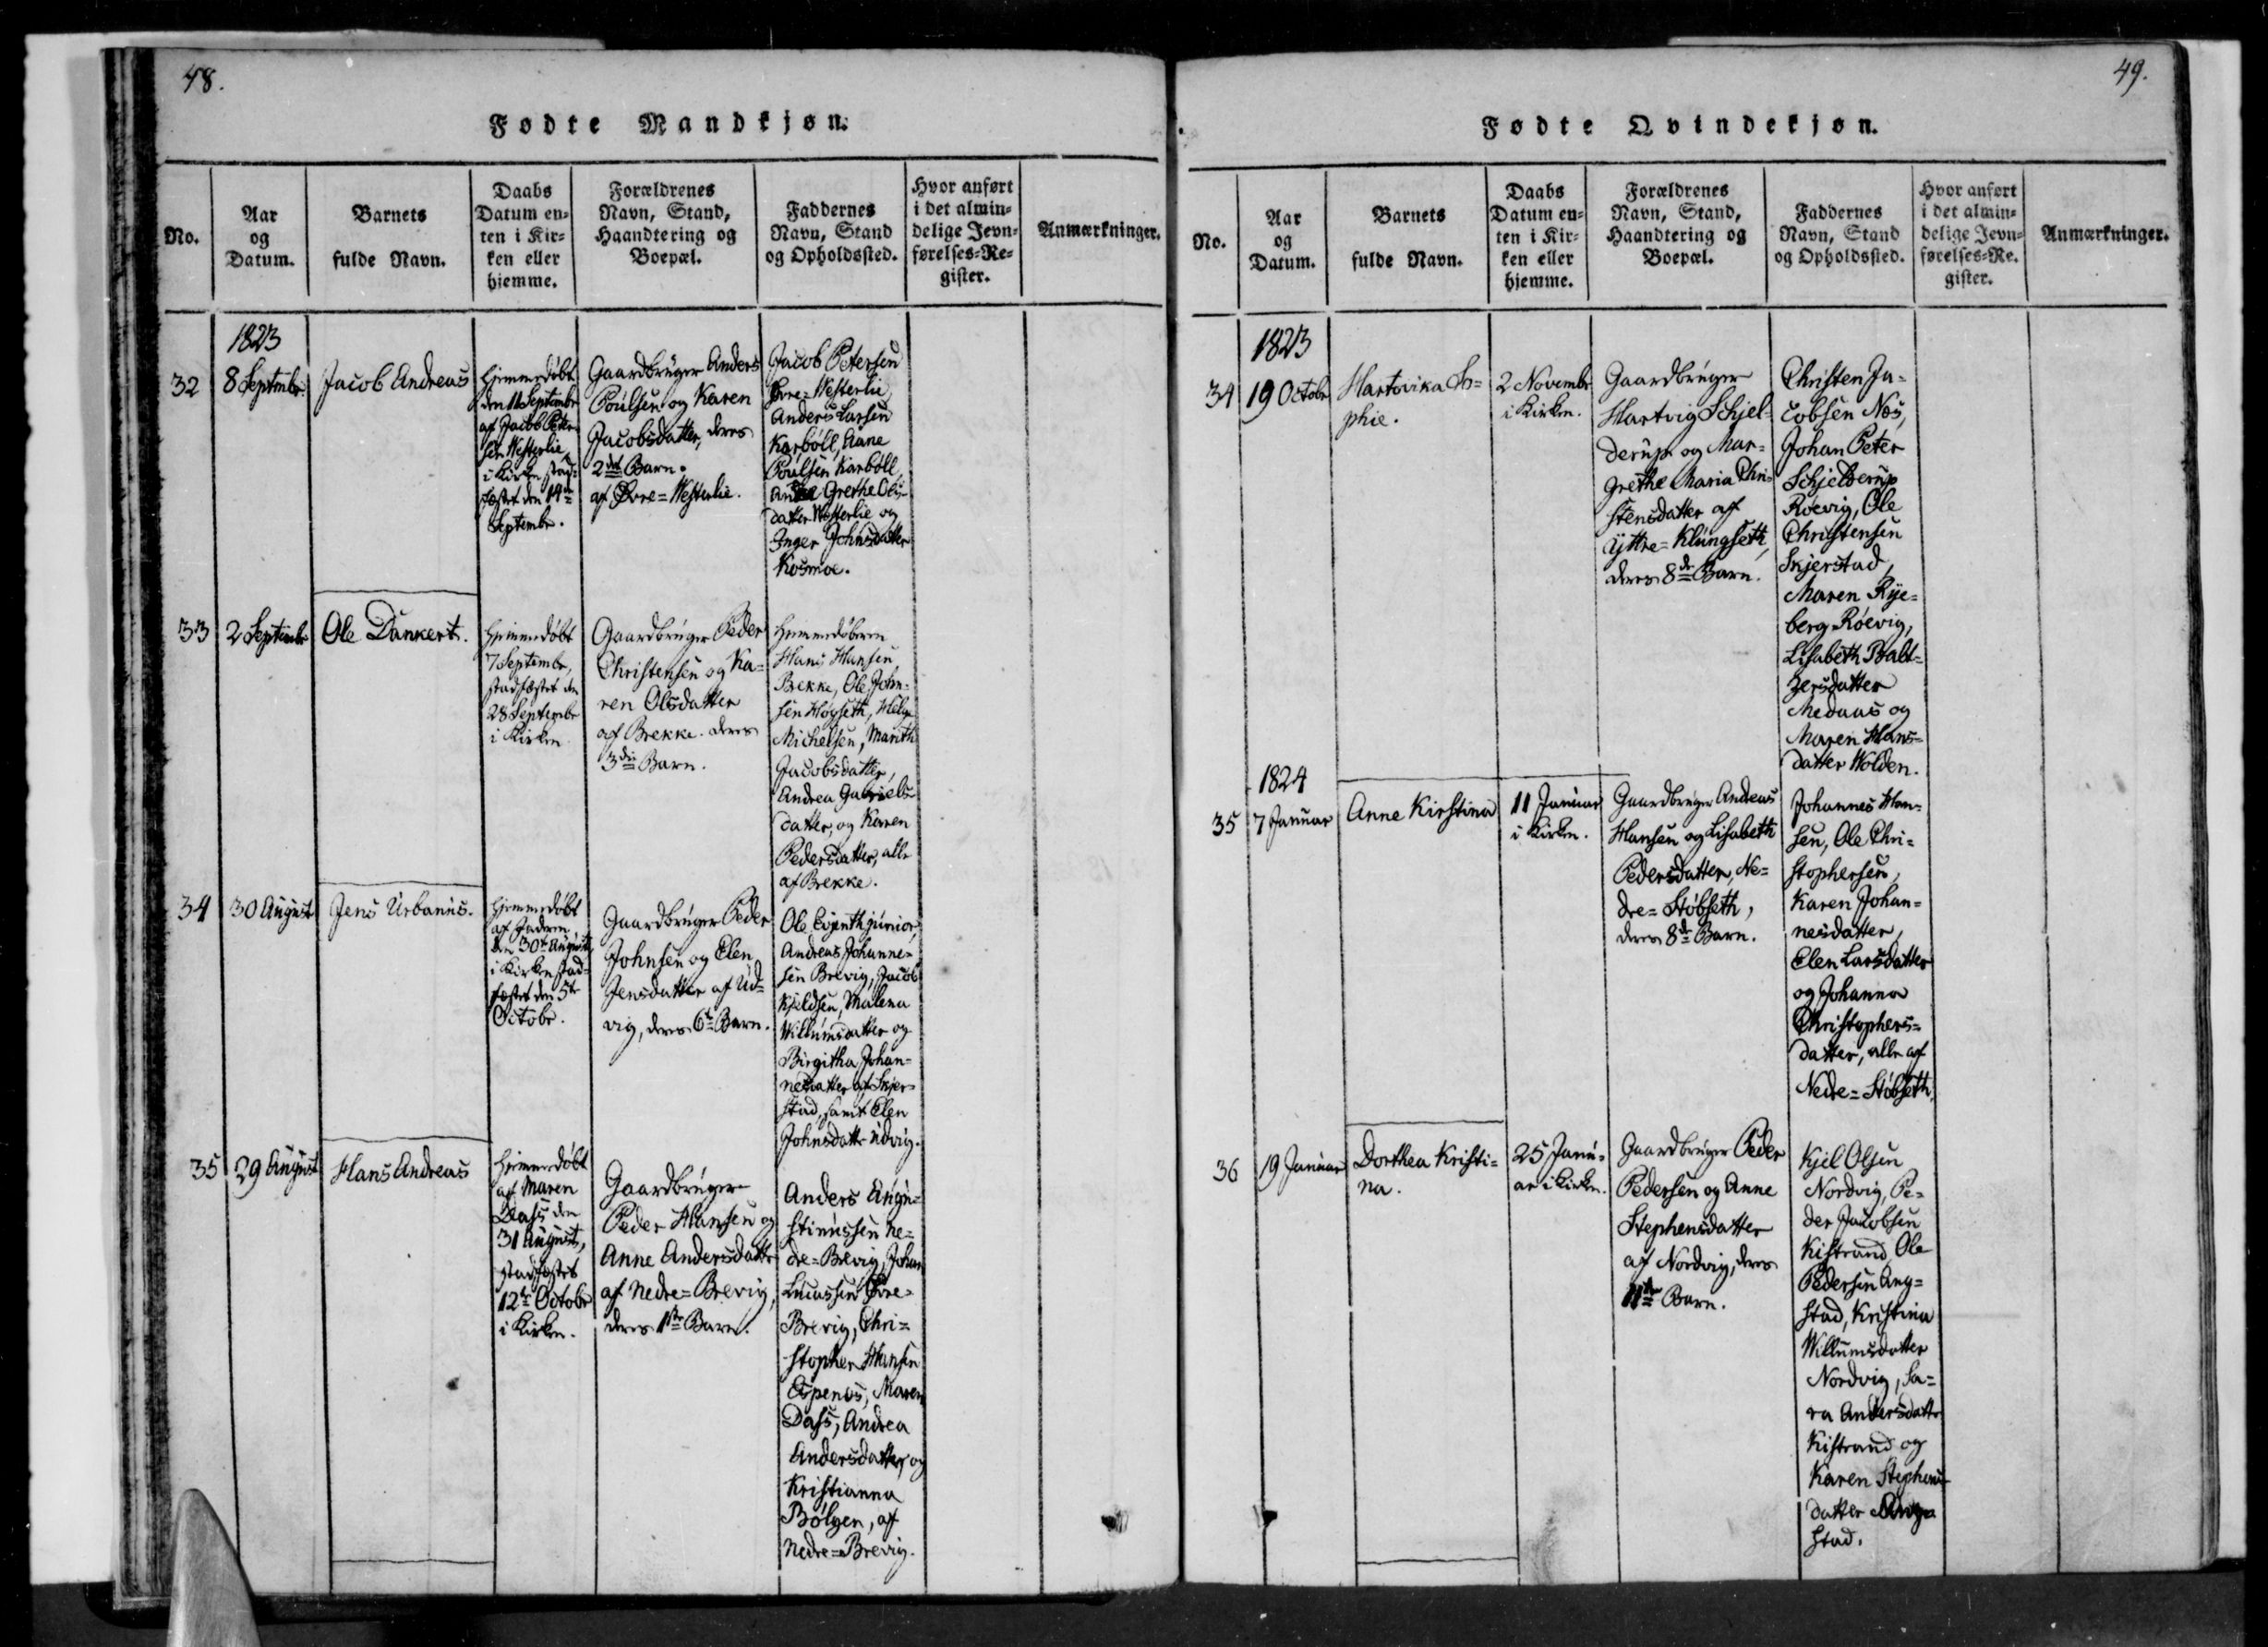 48.
Fødte Mandkjøn.
No.
Aar
og
Datum.
Barnets
fulde Navn.
Daabs
Datum en-
ten i Kir-
ken eller
hjemme.
Forældrenes
Navn, Stand,
Haandtering og
Boepæl.
Faddernes
Navn, Stand
og Opholdssted.
Hvor anført
i det almin-
delige Jevn-
førelses-Re-
gister.
Anmærkninger.
1823
32
8 Septembr.
Jacob Andreas
Hjemmedøbt
den 11 Septembr
af Jacob Peter-
sen Westerlie,
i Kirken stad-
fæstet den 14de
Septembr.
Gaardbruger Anders
Poulsen og Karen
Jacobsdatter, deres
2det Barn.
af Øvre=Westerlie.
Jacob Petersen
Øvre=Westerlie
Anders Larsen
Karbøll, Aane
Poulsen Karbøll,
Grethe Ols-
datter Westerlie og
Inger Johnsdatter
Kosmoe.
33
2 Septembr
Ole Dankert.
Hjemmedøbt
7 Septembr,
stadfæstet den
28 Septembr
i Kirken.
Gaardbruger Peder
Christensen og Ka-
ren Olsdatter
af Brekke. deres
3die Barn.
Hjemmedøberen
Hans Hansen
Brekke, Ole John-
sen Høgseth, Helge
Michelsen, Marith
Jacobsdatter,
Andrea Gabriels-
datter, og Karen
Pedersdatter, alle
af Brekke.
34
30 August
Jens Urbanus.
Hjemmedøbt
af Faderen
den 30te August,
i Kirken stad-
fæstet den 5te
Octobr.
Gaardbruger Peder
Johnsen og Elen
Jensdatter af Ud-
vig, deres 6te Barn.
Ole junior,
Andreas Johanne-
sen Brevig, Jacob
Kjeldsen, Malena
Willumsdatter og
Birgitha Johan-
nesdatter af Skjer-
stad, samt Elen
Johnsdattr Udvig.
35
29 August
Hans Andreas
Hjemmedøbt
af Maren
Dass den
31 August,
stadfæstet
12te Octobr
i Kirken.
Gaardbruger
Peder Hansen og
Anne Andersdattr
af Nedre=Brevig,
deres 1ste Barn.
Anders Augu-
stinussen Ne-
dre=Brevig, Johan
Lucassen Øvre-
Brevig, Chri-
stopher Hansen
Espenes, Maren
Dass, Andrea
Andersdatter, og
Kristianna
Bølgen, af
Nedre=Brevig.
49.
Fødte Qvindekjøn.
No.
Aar
og
Datum.
Barnets
fulde Navn.
Daabs
Datum en-
ten i Kir-
ken eller
hjemme.
Forældrenes
Navn, Stand,
Haandtering og
Boepæl.
Faddernes
Navn, Stand
og Opholdssted.
Hvor anført
i det almin-
delige Jevn-
førelses-Re-
gister.
Anmærkninger.
1823
34
19 Octobr
Hartvika So-
phie.
2 Novembr
i Kirken.
Gaardbruger
Hartvig Schjel-
derup og Mar-
grethe Maria Chri-
stensdatter af
Yttre=Klungseth,
deres 8de Barn.
Christen Ja-
cobsen Nes,
Johan Peter
Schjelderup
Røevig, Ole
Christensen
Skjerstad,
Maren Rye-
berg Røevig,
Lisabeth Balt-
zersdatter
Medaas og
Maren Hans-
datter Wolden.
1824
35
7 Januar
Anne Kirstina
11 Januar
i Kirken.
Gaardbruger Andreas
Hansen og Lisabeth
Pedersdatter, Ne-
dre=Støbseth,
deres 8de Barn.
Johannes Han-
sen, Ole Chri-
stophersen,
Karen Johan-
nesdatter,
Elen Larsdatter
og Johanna
Christophers-
datter, alle af
Nedre=Støbseth.
36
19 Januar
Dorthea Kristi-
na.
25 Janu-
ar i Kirken.
Gaardbruger Peder
Pedersen og Anne
Stephensdatter
af Nordvig, deres
11te Barn.
Kjel Olsen
Nordvig, Pe-
der Jacobsen
Kistrand, Ole
Pedersen Ang-
stad, Kristina
Willumsdatter
Nordvig, Sa-
ra Andersdattr
Kistrand og
Karen Stephens-
datter Ang-
stad.